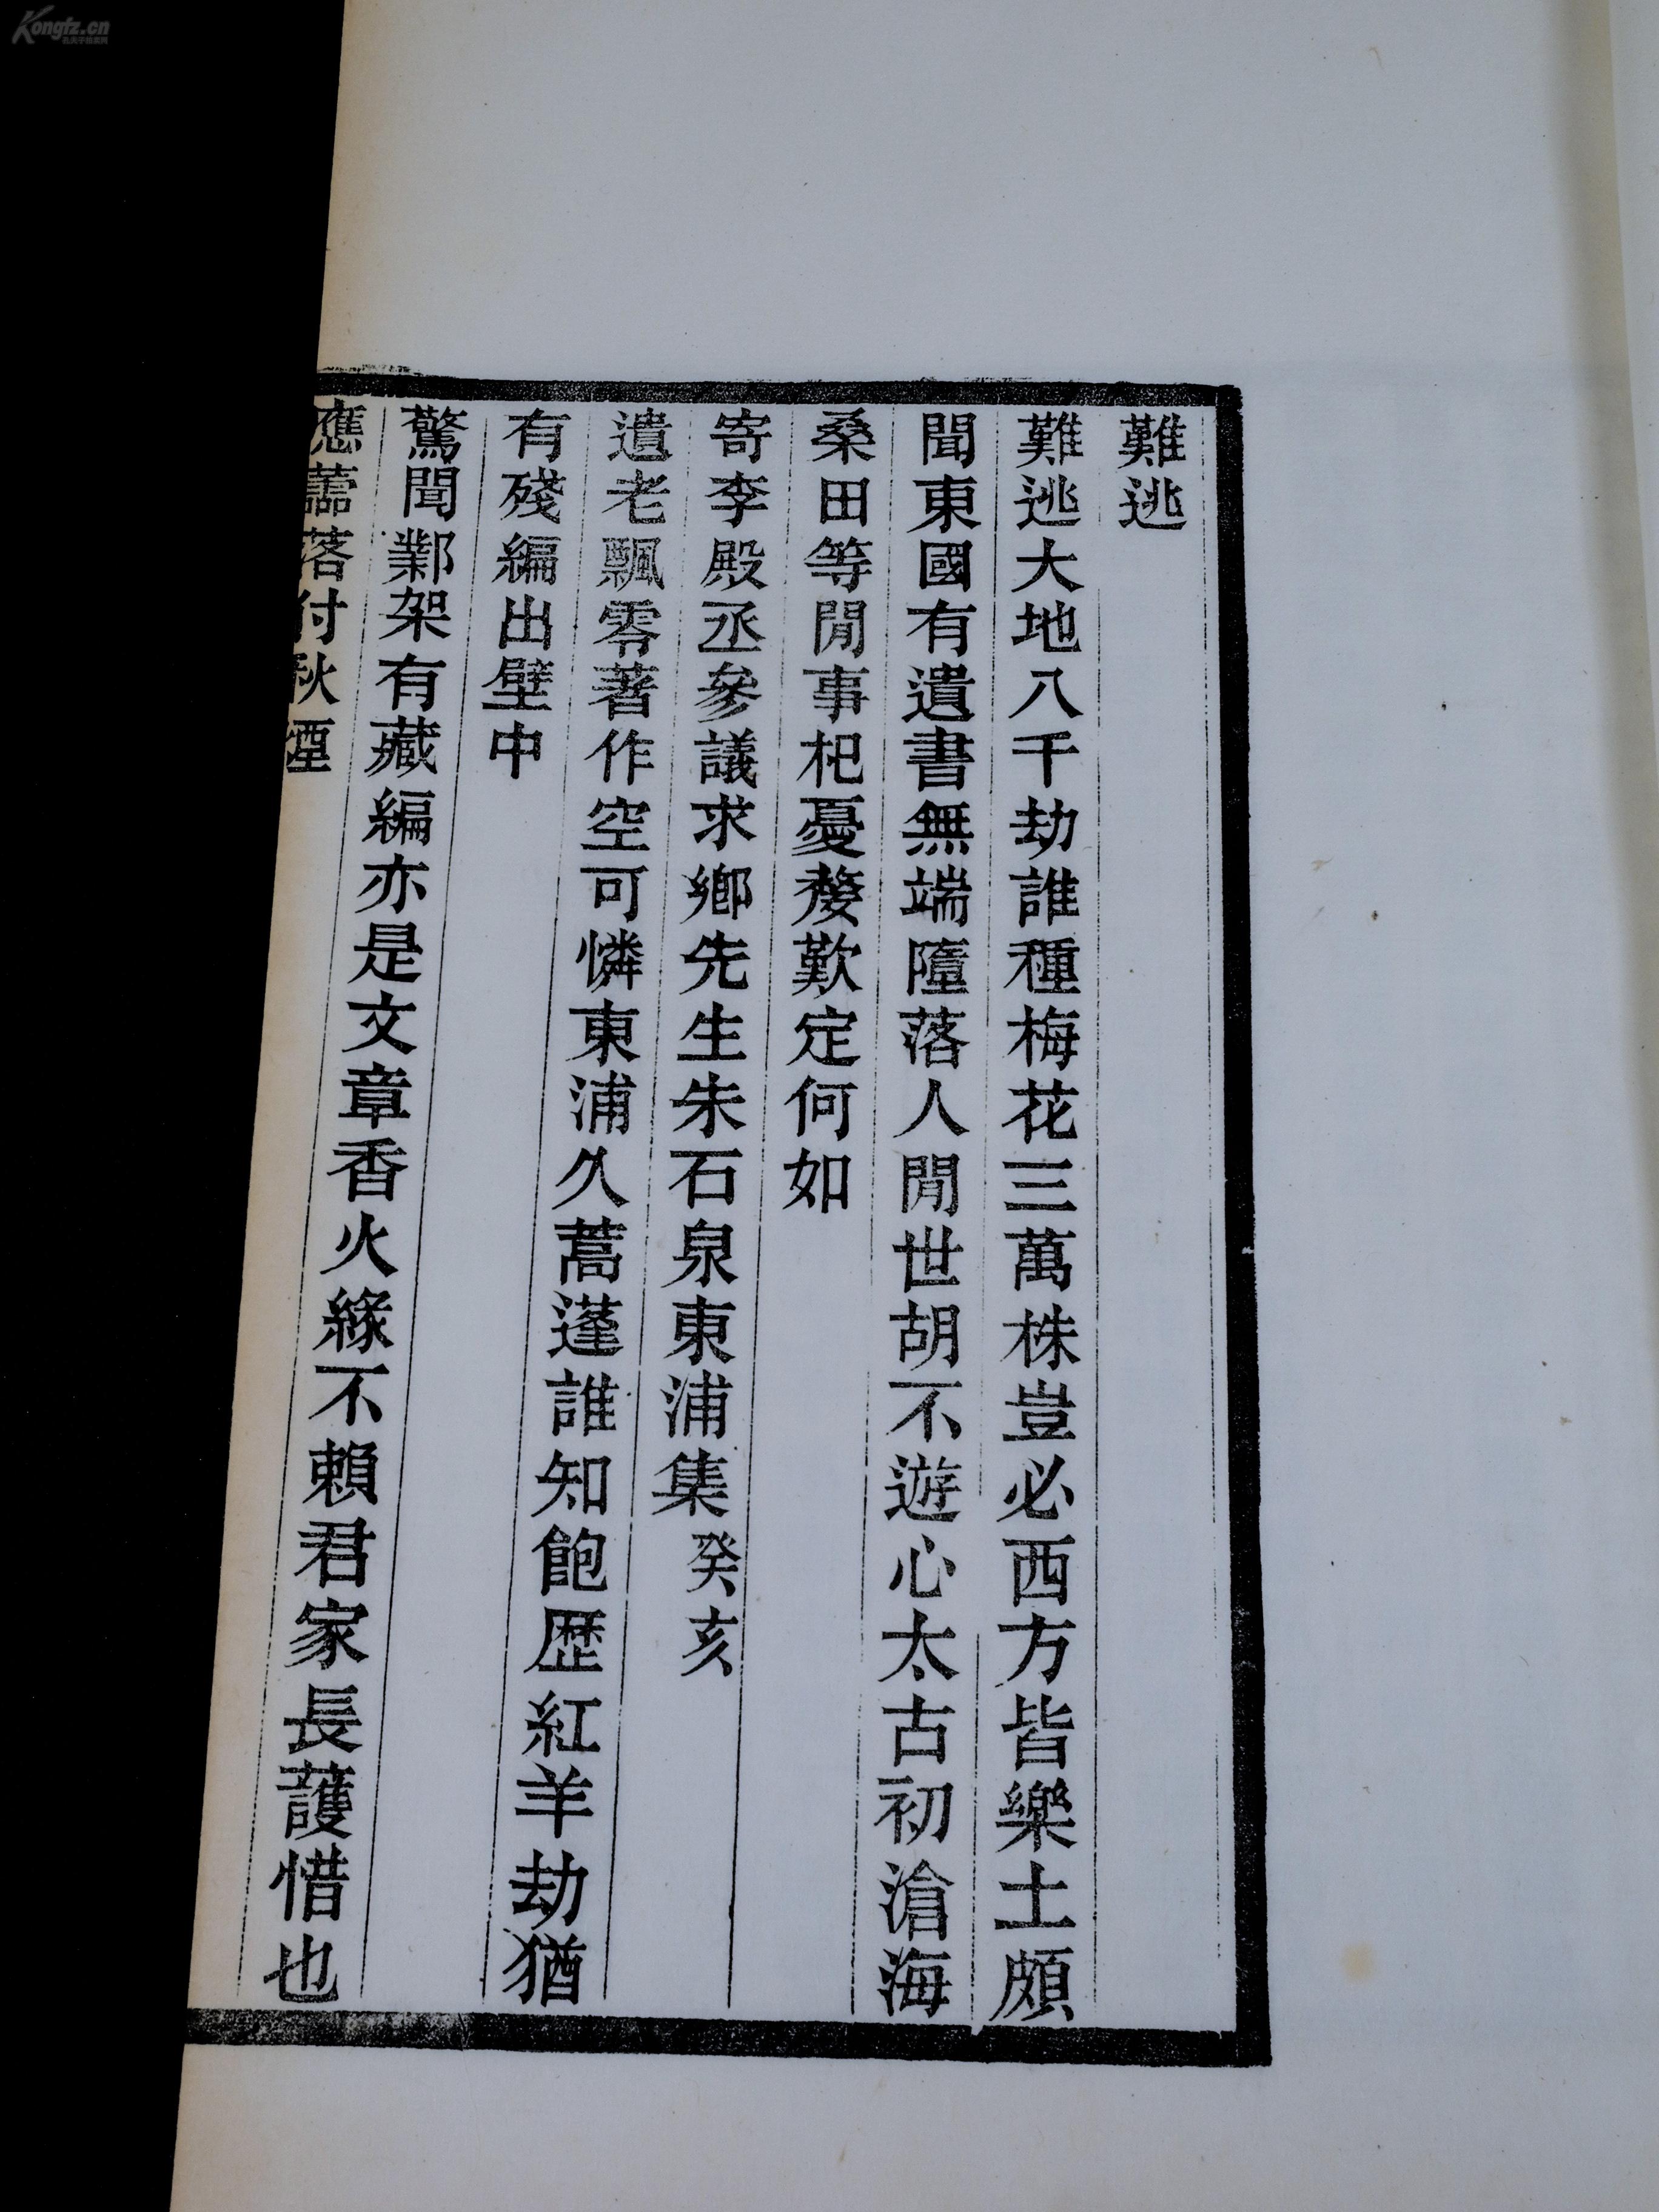 難逃
難逃大地八千劫誰種梅花三萬株豈必西方皆樂土頗
聞東國有遺書無端墮落人閒世胡不遊心太古初滄海
桑田等閒事杞憂嫠歎定何如
寄李殿丞參議求鄉先生朱石泉東浦集癸亥
遺老飄零著作空可憐東浦久蒿蓬誰知飽歷紅羊劫猶
有殘編出壁中
驚聞鄴架有藏編亦是文章香火緣不賴君家長護惜也
應蠹落付秋煙
Kongfz.cn